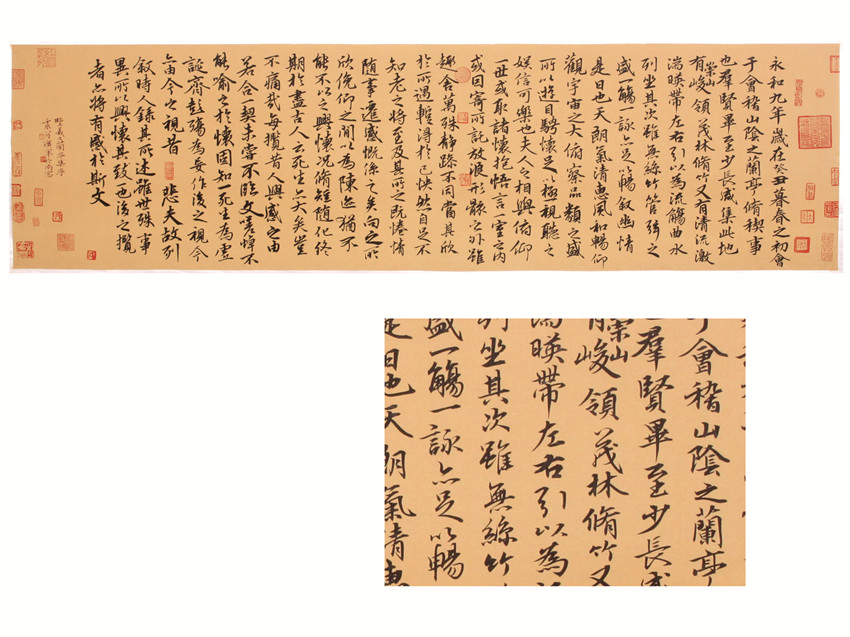 永和九年歲在癸丑暮春之初會
于會稽山陰之蘭亭脩稧事
也羣賢畢至少長咸集此地
有崇山峻領茂林脩竹又有清流激
湍暎帶左右引以為流觴曲水
列坐其次雖無絲竹管弦之
盛一觴一詠亦足以暢叙幽情
是日也天朗氣清惠風和暢仰
觀宇宙之大俯察品類之盛
所以遊目騁懷足以極視聽之
娛信可樂也夫人之相與俯仰
一世或取諸懷抱悟言一室之內
或因寄所託放浪形骸之外雖
趣舍萬殊靜躁不同當其欣
於所遇暫得於己怏然自足不
知老之將至及其所之既惓情
随事遷感慨係之矣向之所
欣俛仰之間以為陳迹猶不
能不以之興懷況脩短随化終
期於盡古人云死生亦大矣豈
不痛哉每攬昔人興感之由
若合一契未嘗不臨文嗟悼不
能喻之於懷固知一死生為虛
誕齊彭殤為妄作後之視今
亦由今之視昔 悲夫故列
叙時人錄其所述雖世殊事
異所以興懷其致一也後之攬
者亦將有感於斯文
臨王羲之蘭亭集序
于會稽山陰之蘭亭
羣賢畢至少長咸
崇山峻領茂林脩竹又
湍暎帶左右引以為
列坐其次雖無絲竹
盛一觴一詠亦足以暢
是日也天朗氣清惠